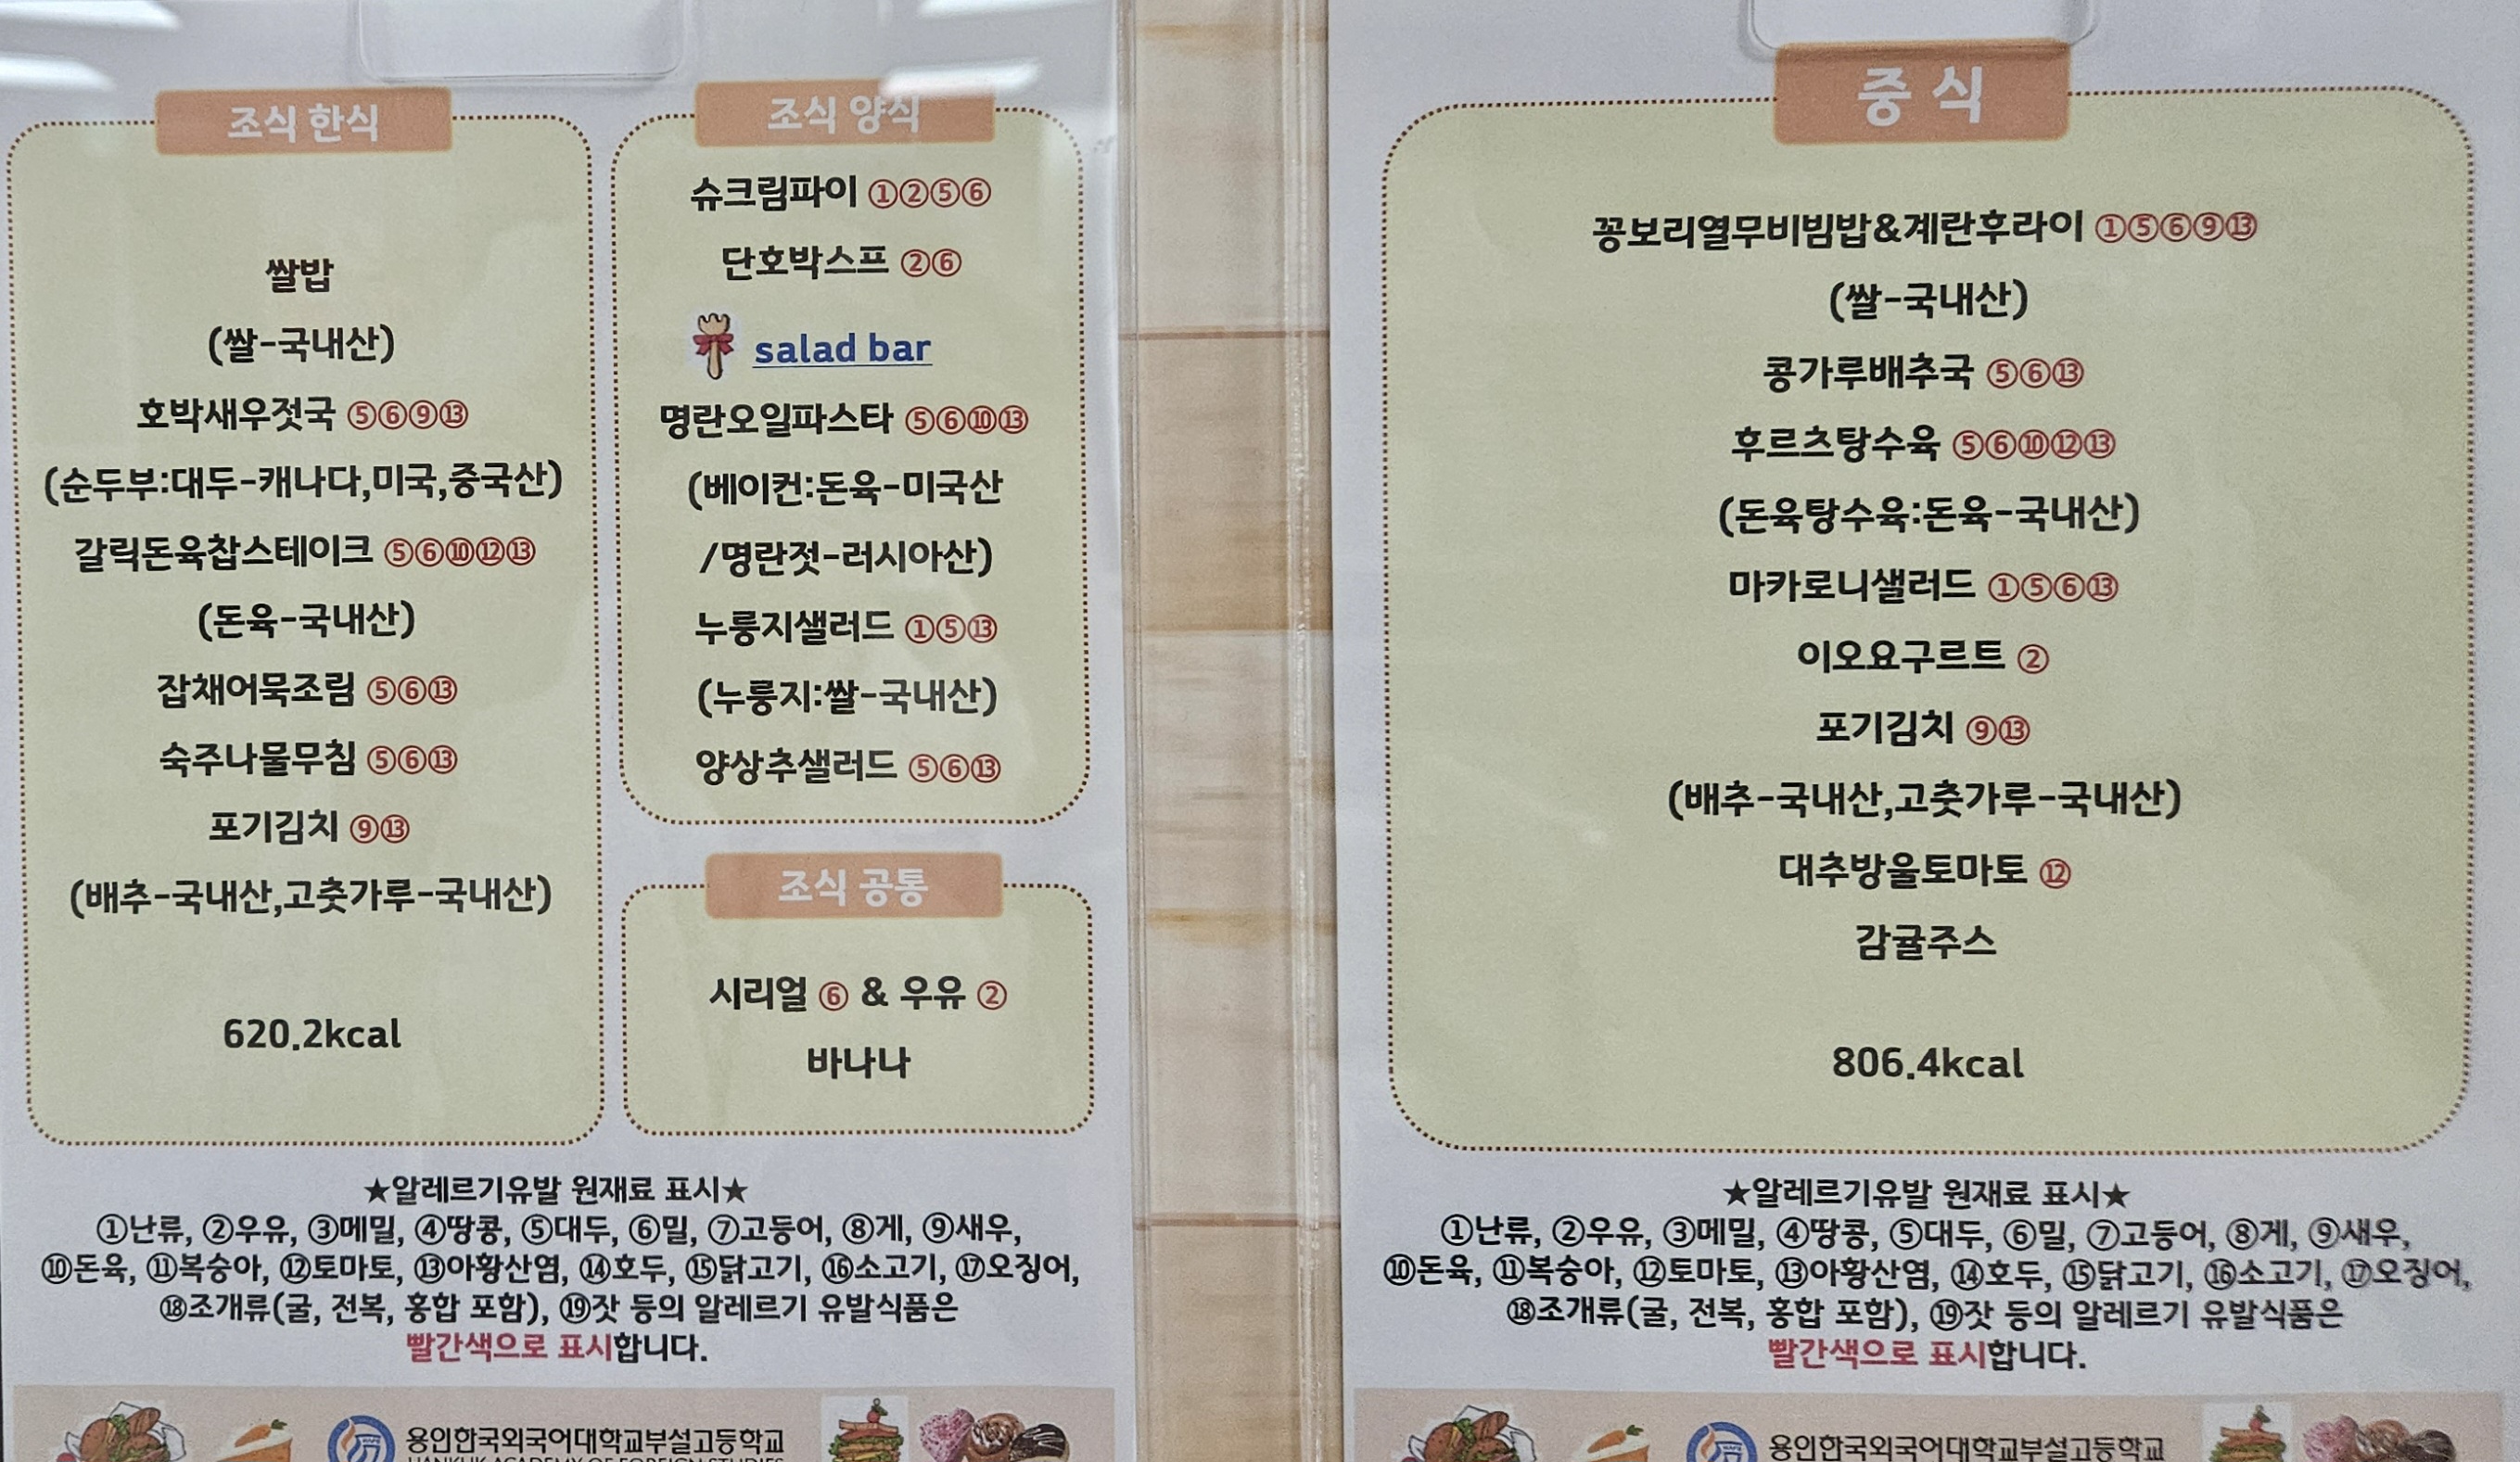 조식 한식
쌀밥
(쌀-국내산)
호박새우젓국 ⑤⑥⑨⑬
(순두부:대두-캐나다,미국,중국산)
갈릭돈육찹스테이크 ⑤⑥⑩⑫⑬
(돈육-국내산)
잡채어묵조림 ⑤⑥⑬
숙주나물무침 ⑤⑥⑬
포기김치 ⑨⑬
(배추-국내산,고춧가루-국내산)
620.2kcal
조식 양식
슈크림파이 ①②⑤⑥
단호박스프 ②⑥
salad bar
명란오일파스타 ⑤⑥⑩⑬
(베이컨:돈육-미국산
/명란젓-러시아산)
누룽지샐러드 ①⑤⑬
(누룽지:쌀-국내산)
양상추샐러드 ⑤⑥⑬
조식 공통
시리얼 ⑥ & 우유 ②
바나나
★알레르기유발 원재료 표시★
①난류, ②우유, ③메밀, ④땅콩, ⑤대두, ⑥밀, ⑦고등어, ⑧게, ⑨새우,
⑩돈육, ⑪복숭아, ⑫토마토, ⑬아황산염, ⑭호두, ⑮닭고기, ⑯소고기, ⑰오징어,
⑱조개류(굴, 전복, 홍합 포함), ⑲잣 등의 알레르기 유발식품은
빨간색으로 표시합니다.
용인한국외국어대학교부설고등학교
HANKUK ACADEMY OF FOREIGN STUDIES
중식
꽁보리열무비빔밥&계란후라이 ①⑤⑥⑨⑬
(쌀-국내산)
콩가루배추국 ⑤⑥⑬
후르츠탕수육 ⑤⑥⑩⑫⑬
(돈육탕수육:돈육-국내산)
마카로니샐러드 ①⑤⑥⑬
이오요구르트 ②
포기김치 ⑨⑬
(배추-국내산,고춧가루-국내산)
대추방울토마토 ⑫
감귤주스
806.4kcal
★알레르기유발 원재료 표시★
①난류, ②우유, ③메밀, ④땅콩, ⑤대두, ⑥밀, ⑦고등어, ⑧게, ⑨새우,
⑩돈육, ⑪복숭아, ⑫토마토, ⑬아황산염, ⑭호두, ⑮닭고기, ⑯소고기, ⑰오징어,
⑱조개류(굴, 전복, 홍합 포함), ⑲잣 등의 알레르기 유발식품은
빨간색으로 표시합니다.
용인한국외국어대학교부설고등학교